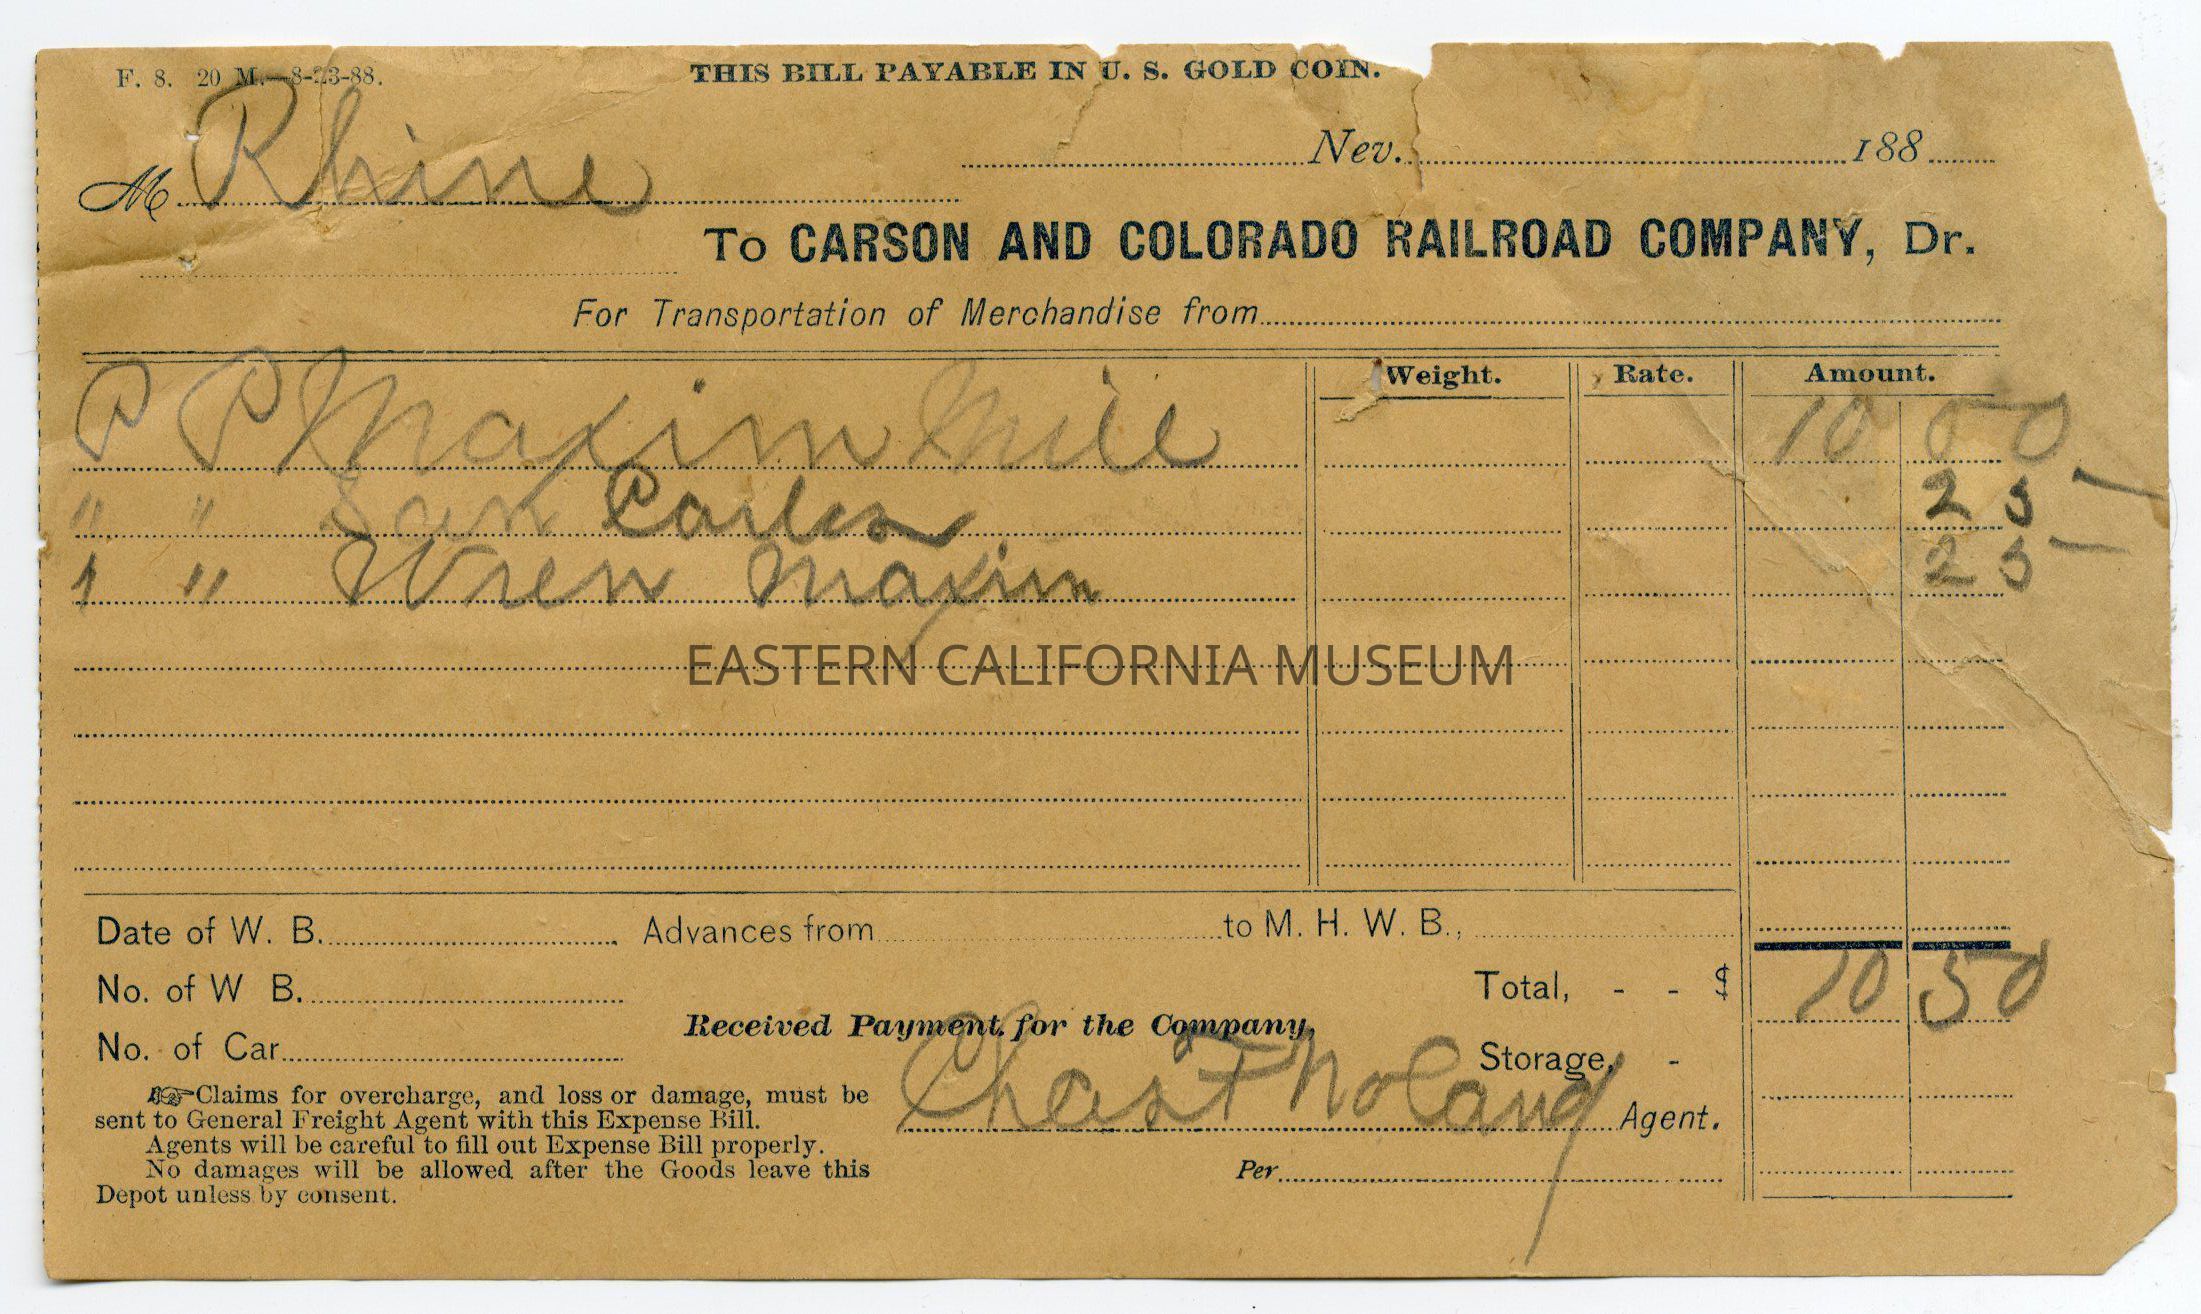 F. 8. 20 M.—8-23-88.
THIS BILL PAYABLE IN U. S. GOLD COIN.
Nev. 188
M Rhine
To CARSON AND COLORADO RAILROAD COMPANY, Dr.
For Transportation of Merchandise from
Weight. Rate. Amount.
P P Maxim Mill 10 00
" " San Carlos 25
" " Wren Maxim 25
EASTERN CALIFORNIA MUSEUM
Date of W. B. Advances from to M. H. W. B.,
No. of W B. Total, - - $ 10 50
Received Payment for the Company,
No. of Car Storage, -
Chas Agent.
☞Claims for overcharge, and loss or damage, must be
sent to General Freight Agent with this Expense Bill.
Agents will be careful to fill out Expense Bill properly.
No damages will be allowed after the Goods leave this
Depot unless by consent.
Per